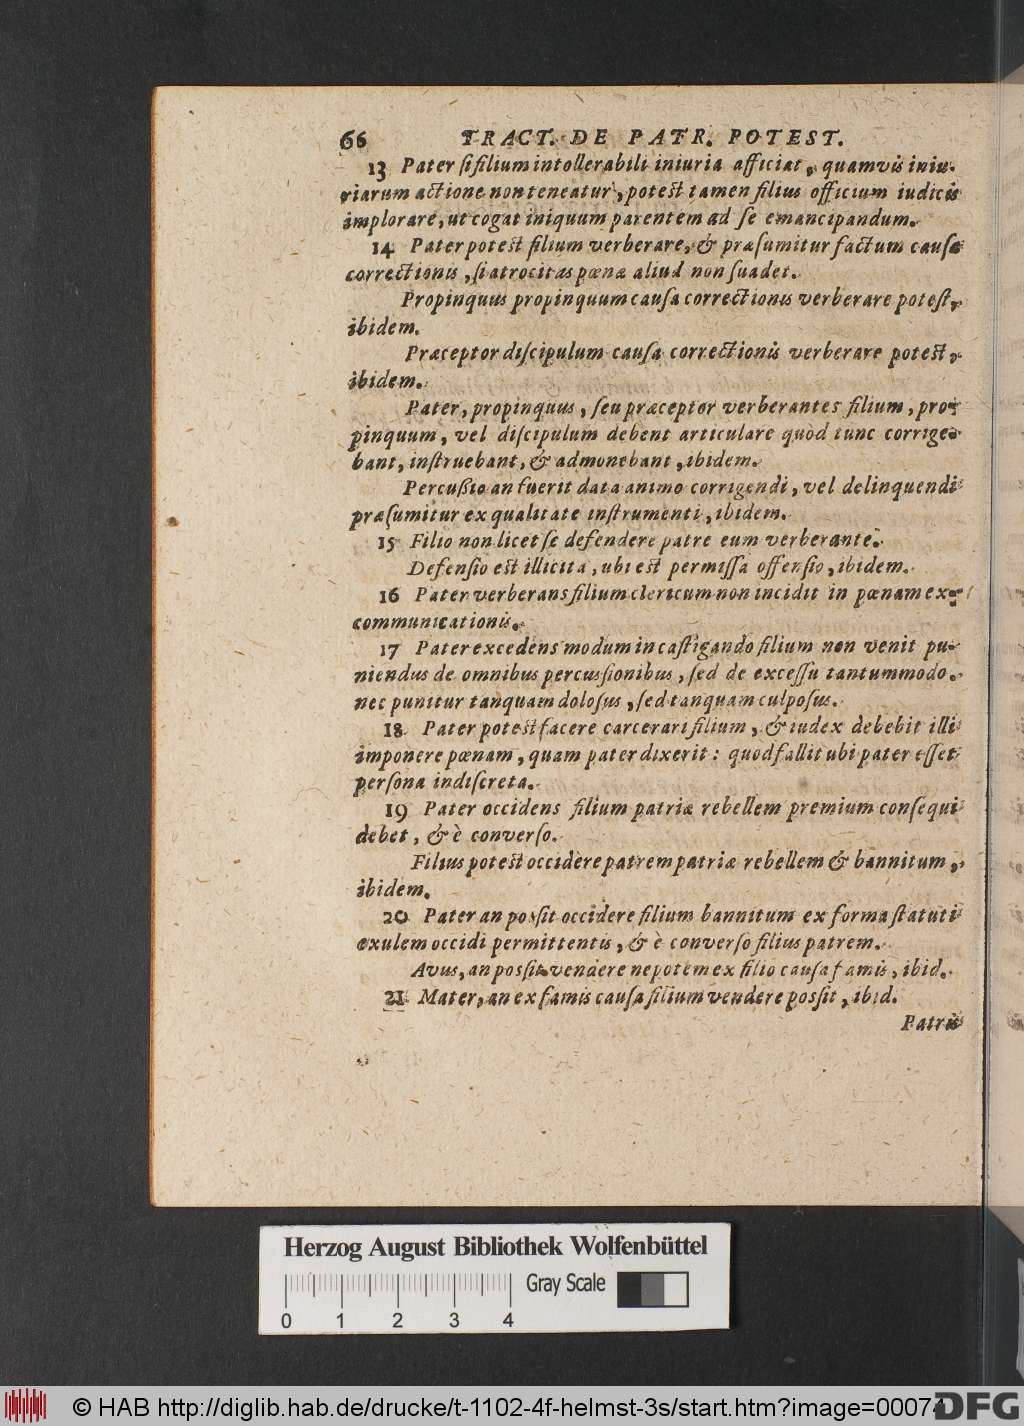 66 TRACT. DE PATR. POTEST.
13 Pater ſi filium intollerabili iniuria afficiat, quamvis iniu-
riarum actione non teneatur, potest tamen filius officium iudicis
implorare, ut cogat iniquum parentem ad ſe emancipandum.
14 Pater potest filium verberare, & præſumitur factum cauſa
correctionis, ſi atrocitas pœnæ aliud non ſuadet.
Propinquus propinquum cauſa correctionis verberare poteſt,
ibidem.
Præceptor diſcipulum cauſa correctionis verberare potest,
ibidem.
Pater, propinquus, ſeu præceptor verberantes filium, pro-
pinquum, vel diſcipulum debent articulare quòd tunc corrige-
bant, inſtruebant, & admonebant, ibidem.
Percußio an fuerit data animo corrigendi, vel delinquendi
præſumitur ex qualitate inſtrumenti, ibidem.
15 Filio non licet ſe defendere patre eum verberante.
Defenſio est illicita, ubi est permiſſa offenſio, ibidem.
16 Pater verberans filium clericum non incidit in pœnam ex-
communicationis.
17 Pater excedens modum in caſtigando filium non venit pu-
niendus de omnibus percuſſionibus, ſed de exceſſu tantummodo.
nec punitur tanquam doloſus, ſed tanquam culpoſus.
18 Pater potest facere carcerari filium, & iudex debebit illi
imponere pœnam, quam pater dixerit: quod fallit ubi pater eſſet
perſona indiſcreta.
19 Pater occidens filium patriæ rebellem premium conſequi
debet, & è converſo.
Filius potest occidere patrem patriæ rebellem & bannitum,
ibidem.
20 Pater an poſſit occidere filium bannitum ex forma ſtatuti
exulem occidi permittentis, & è converſo filius patrem.
Avus, an poſſit vendere nepotem ex filio cauſa famis, ibid.
21 Mater, an ex famis cauſa filium vendere poſſit, ibid.
Patris
Herzog August Bibliothek Wolfenbüttel
Gray Scale
0 1 2 3 4
© HAB http://diglib.hab.de/drucke/t-1102-4f-helmst-3s/start.htm?image=00074
DFG